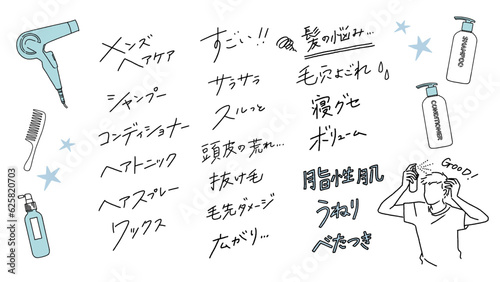 メンズ
ヘアケア
シャンプー
コンディショナー
ヘアトニック
ヘアスプレー
ワックス
すごい!!
サラサラ
スルっと
頭皮の荒れ...
抜け毛
毛先ダメージ
広がり...
髪の悩み...
毛穴よごれ
寝グセ
ボリューム
脂性肌
うねり
べたつき
SHAMPOO
CONDITIONER
GOOD!
Adobe Stock | #625820703
Adobe Stock